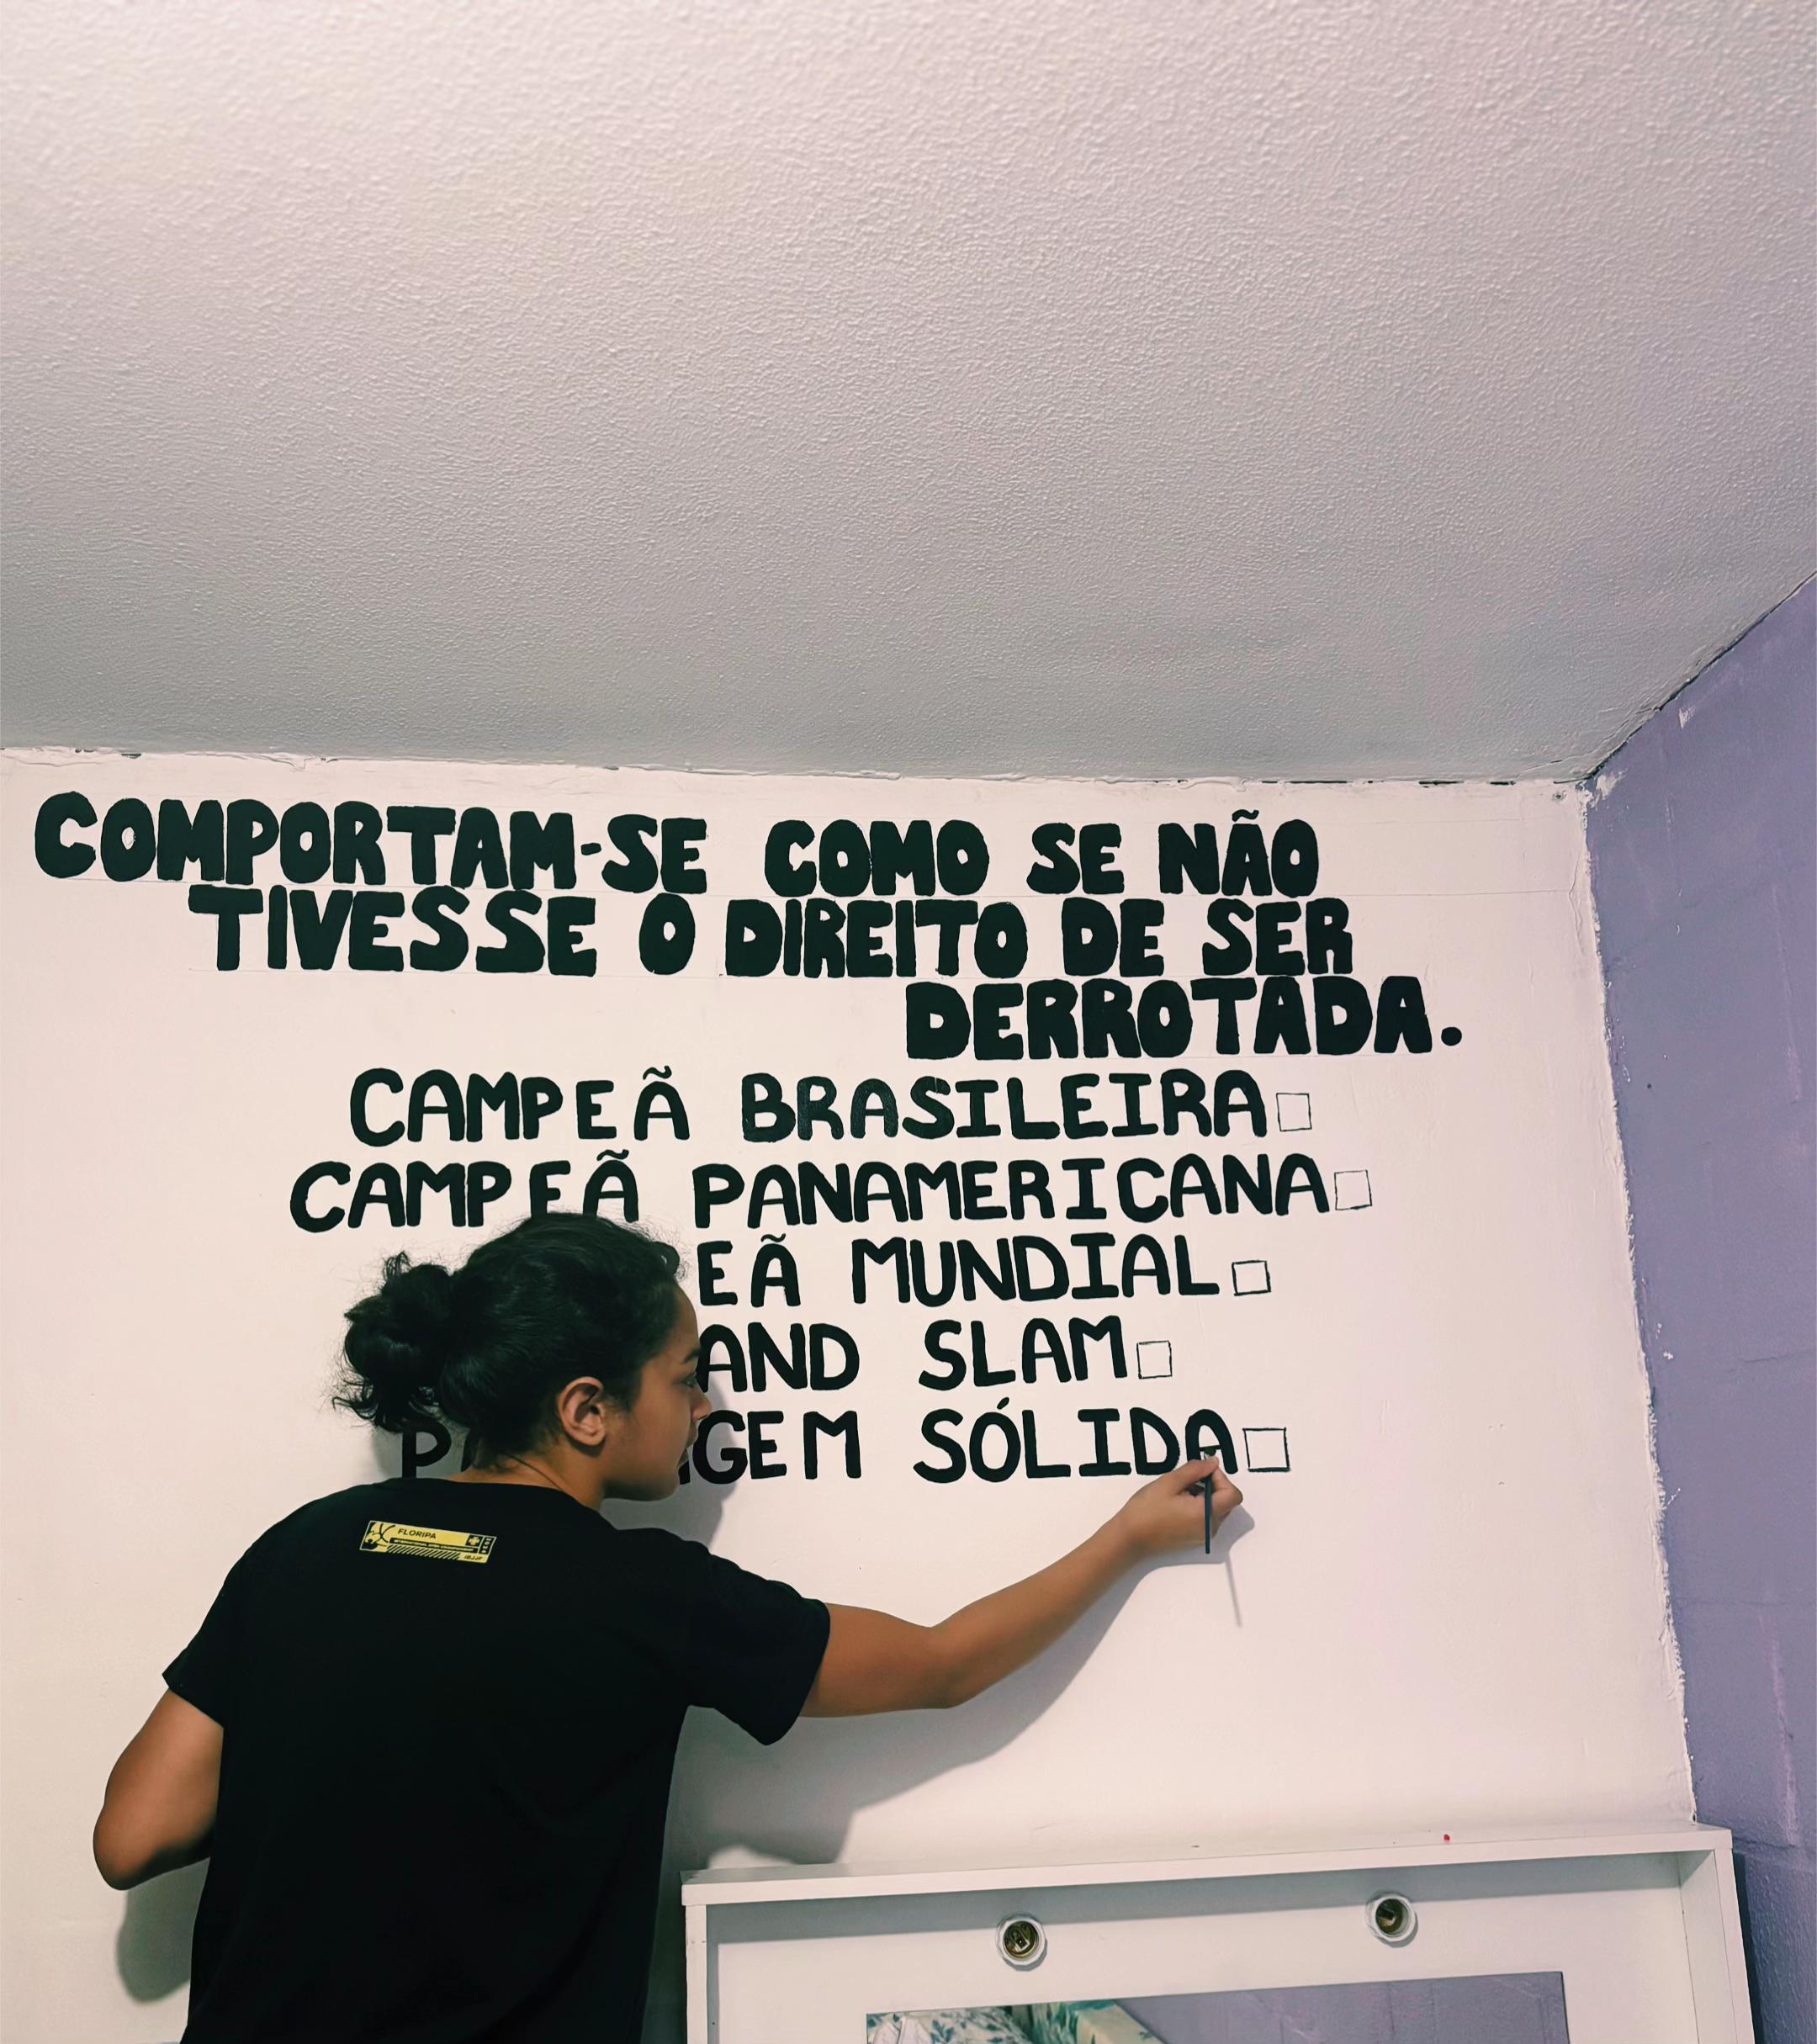 COMPORTAM-SE COMO SE NÃO
TIVESSE O DIREITO DE SER
DERROTADA.
CAMPEÃ BRASILEIRA
CAMPEÃ PANAMERICANA
EÃ MUNDIAL
AND SLAM
GEM SÓLIDA
FLORIPA
IBJJF